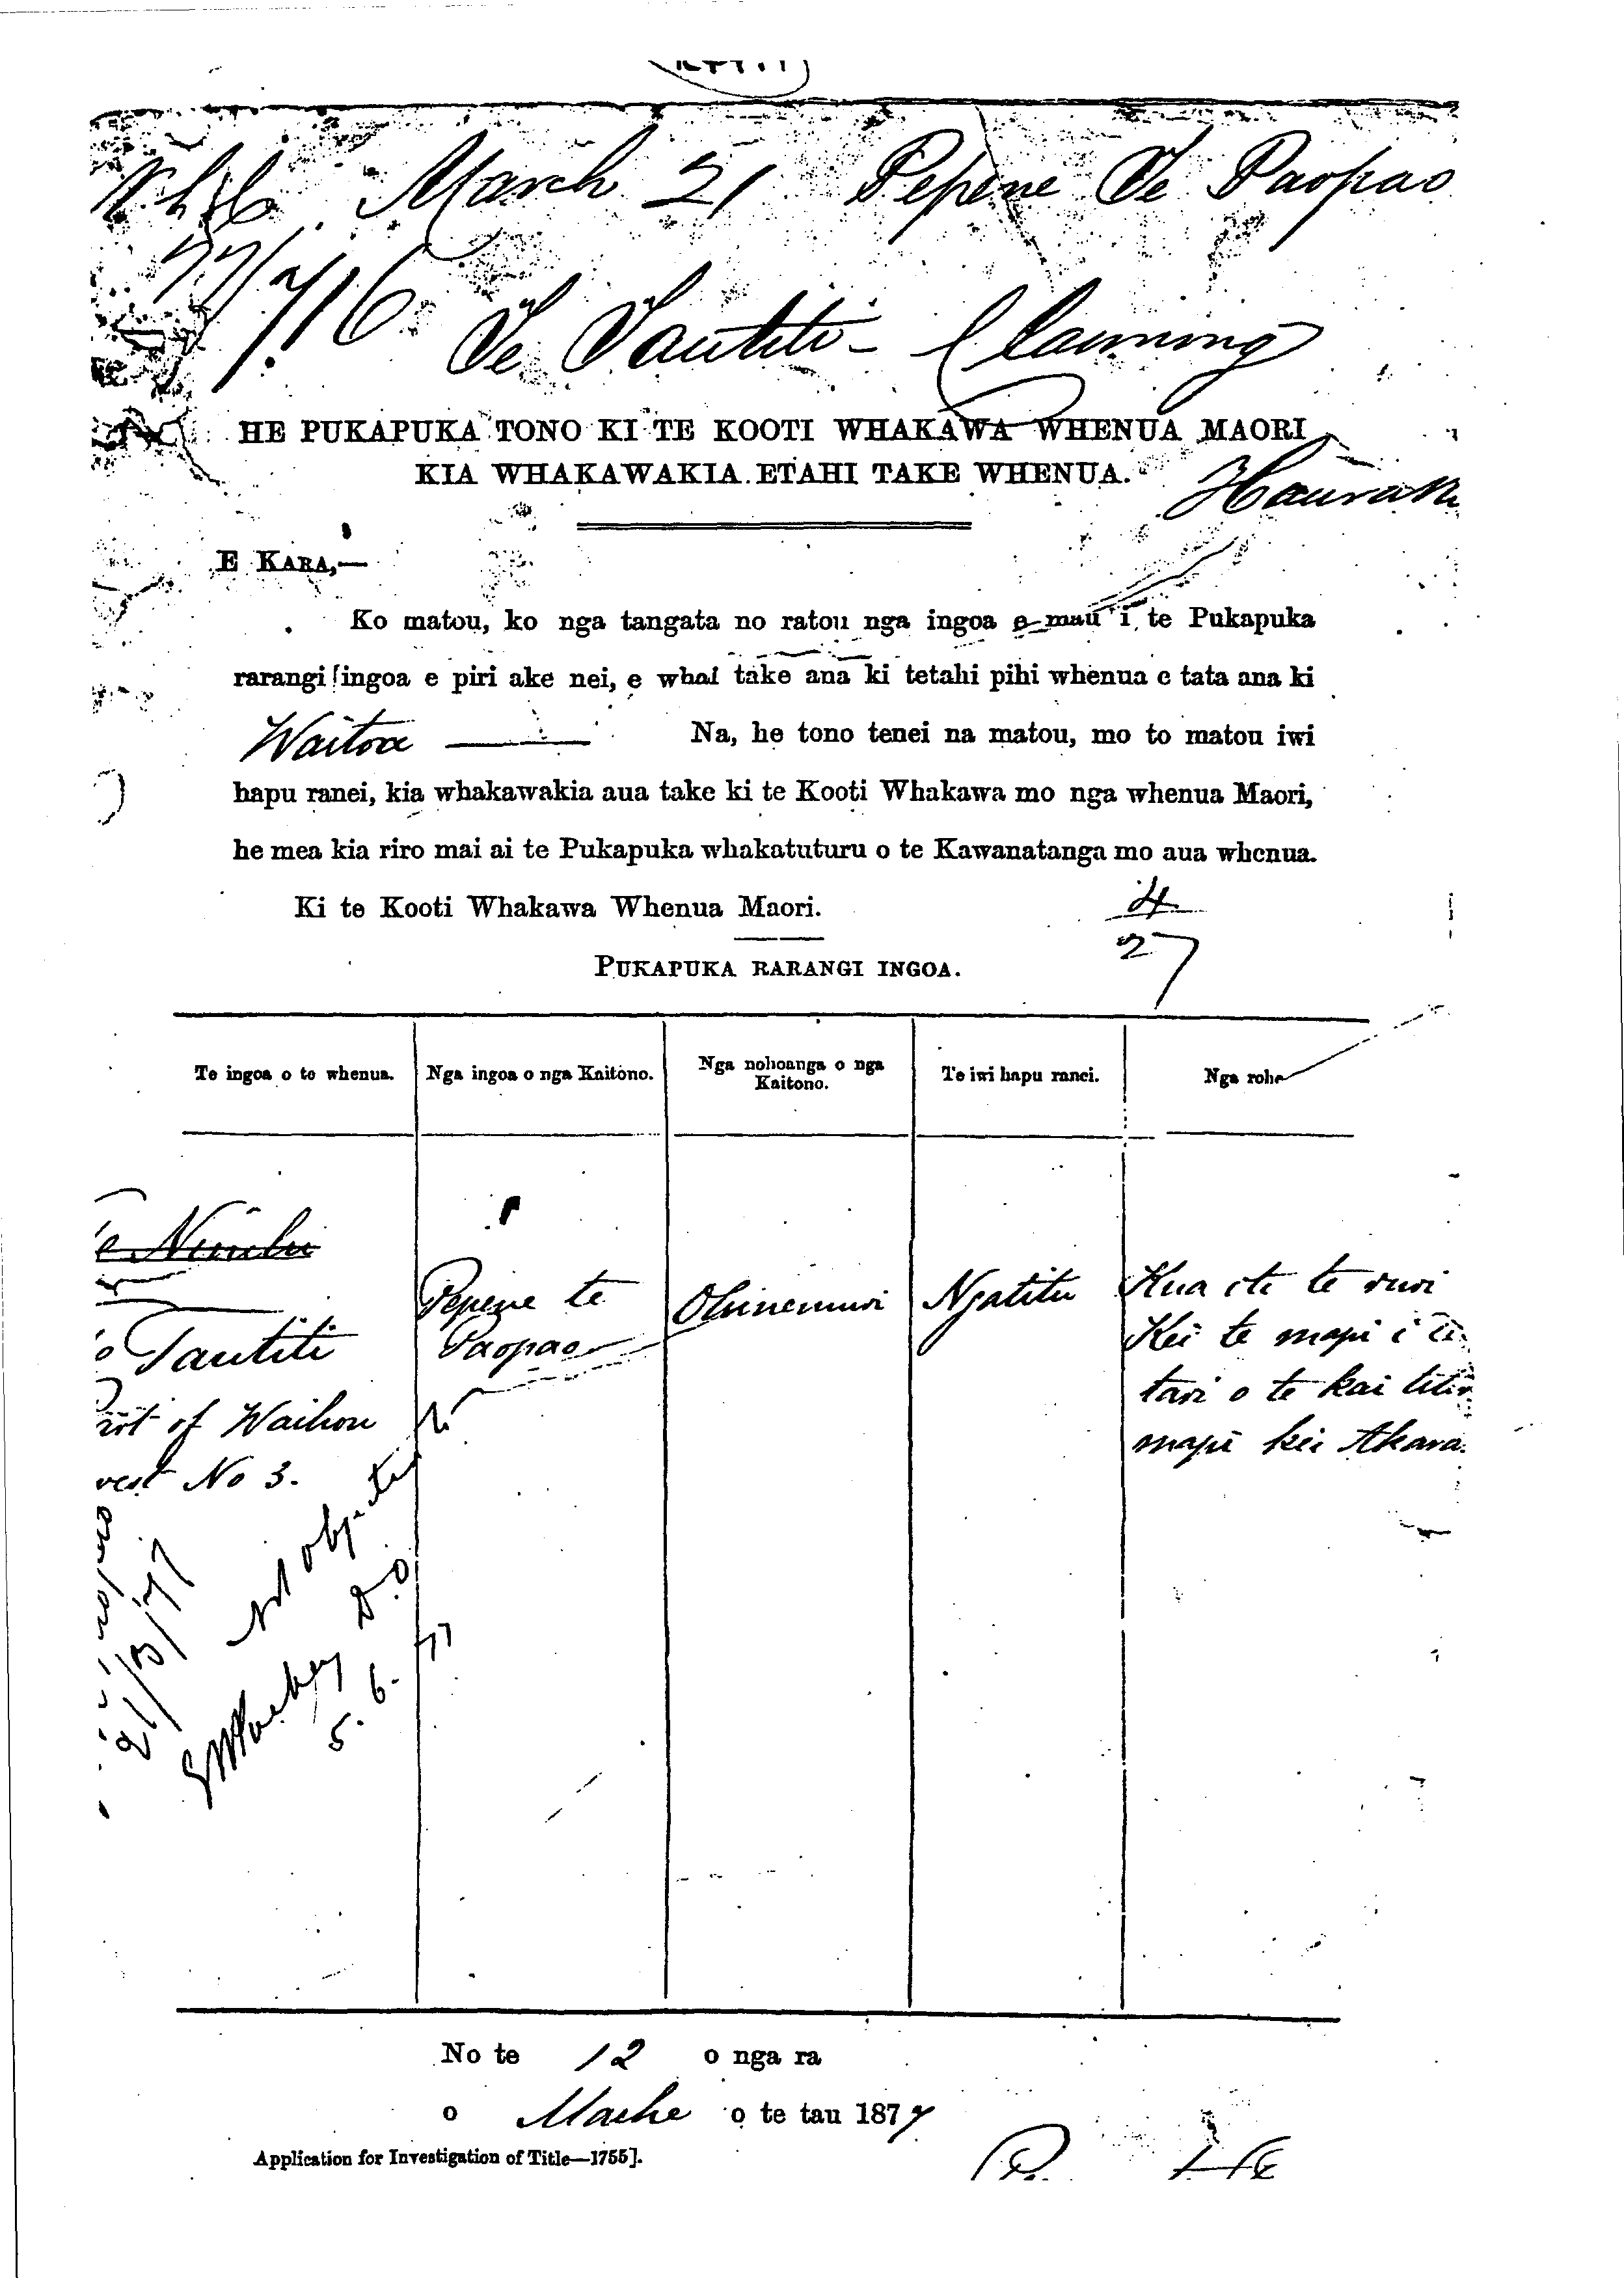 March 21 Pepene Te Paopao
77/716 Te Tautiti - Claiming
HE PUKAPUKA TONO KI TE KOOTI WHAKAWA WHENUA MAORI
KIA WHAKAWAKIA ETAHI TAKE WHENUA.
Hauraki
E KARA,—
Ko matou, ko nga tangata no ratou nga ingoa e mau i te Pukapuka
rarangi ingoa e piri ake nei, e whai take ana ki tetahi pihi whenua e tata ana ki
Waitoa Na, he tono tenei na matou, mo to matou iwi
hapu ranei, kia whakawakia aua take ki te Kooti Whakawa mo nga whenua Maori,
he mea kia riro mai ai te Pukapuka whakatuturu o te Kawanatanga mo aua whenua.
Ki te Kooti Whakawa Whenua Maori.
4
27
PUKAPUKA RARANGI INGOA.
Te ingoa o te whenua. Nga ingoa o nga Kaitono. Nga nohoanga o nga Kaitono. Te iwi hapu ranei. Nga rohe
Tautiti
of Waihou
No 3.
Pepene te
Paopao
Ohinemuri
Ngatitu
Kua oti te ruri
Kei te mapi i
tari o te kai titiro
mapi kei Akara.
21/3/77
not objected
D.O
5.6.77
No te 12 o nga ra
o Maehe o te tau 1877
Application for Investigation of Title—1755].